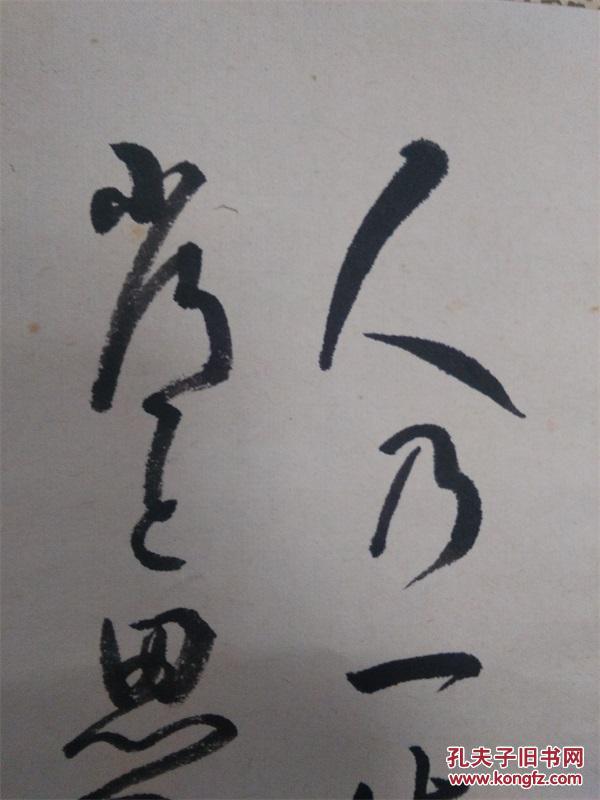 人乃一
常と思
孔夫子旧书网
www.kongfz.com